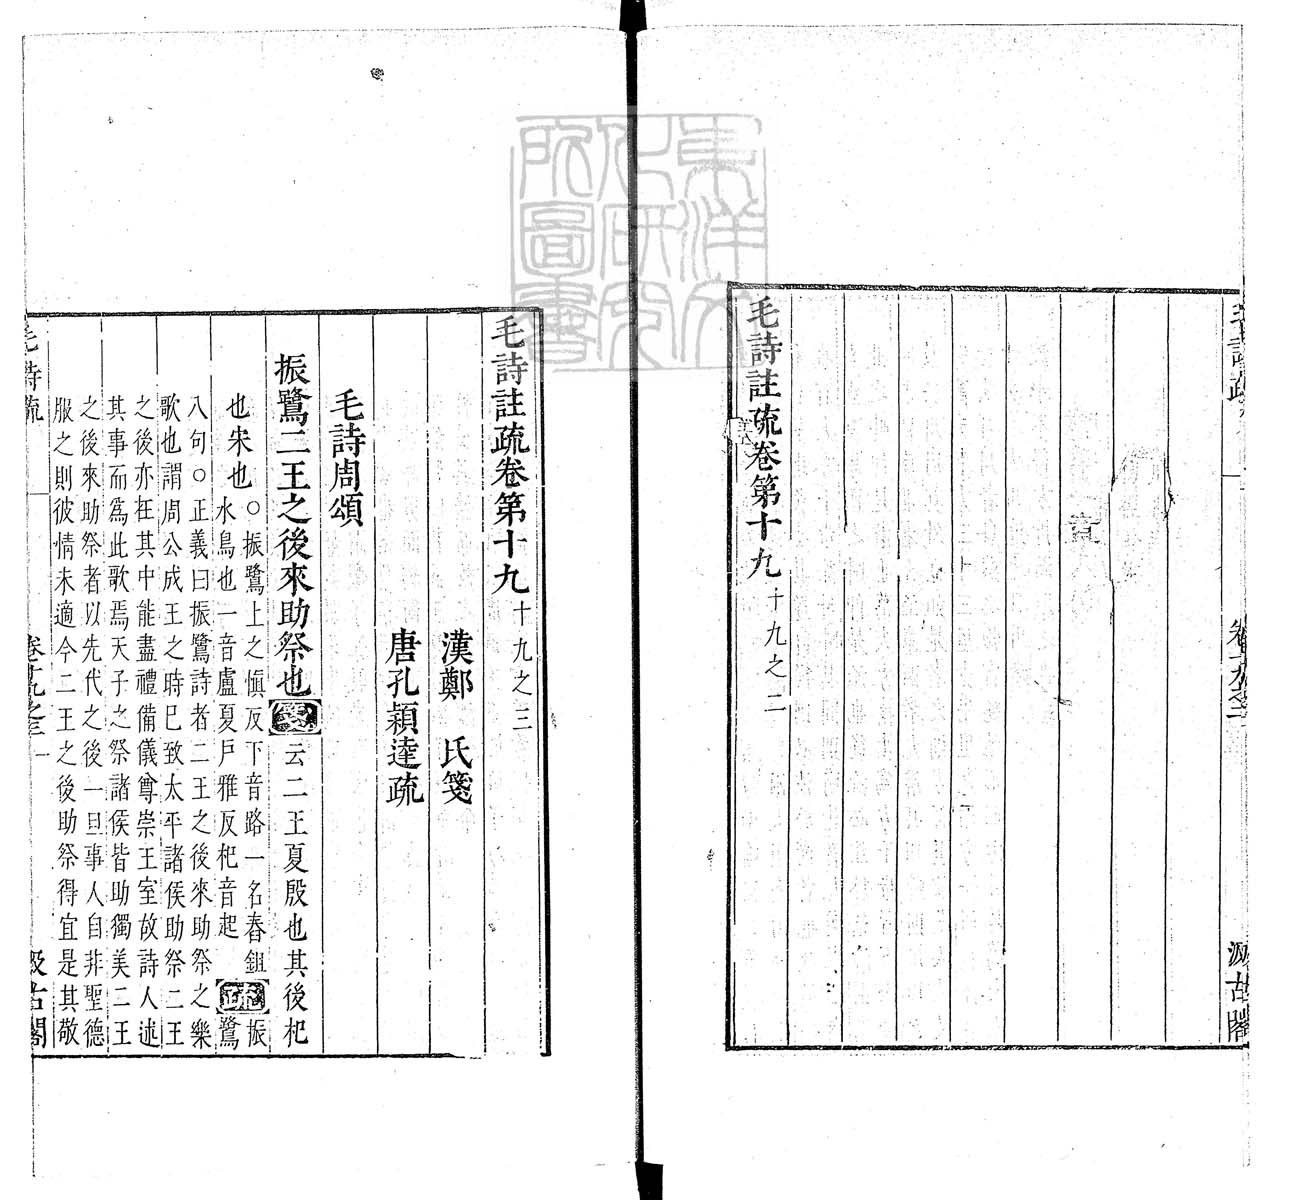 毛詩疏
卷十九之二
汲古閣
毛詩註疏卷第十九 十九之二
東洋文化研究所圖書
毛詩註疏卷第十九 十九之三
漢鄭 氏箋
唐孔穎達疏
毛詩周頌
振鷺二王之後來助祭也 箋 云二王夏殷也其後杞
也宋也 ○振鷺上之慎反下音路一名舂鉏 振
水鳥也一音盧夏戶雅反杞音起 疏 鷺
八句○正義曰振鷺詩者二王之後來助祭之樂
歌也謂周公成王之時已致太平諸侯助祭二王
之後亦在其中能盡禮備儀尊崇王室故詩人述
其事而爲此歌焉天子之祭諸侯皆助獨美二王
之後來助祭者以先代之後一旦事人自非聖德
服之則彼情未適今二王之後助祭得宜是其敬
毛詩疏
卷十九之三
一
汲古閣